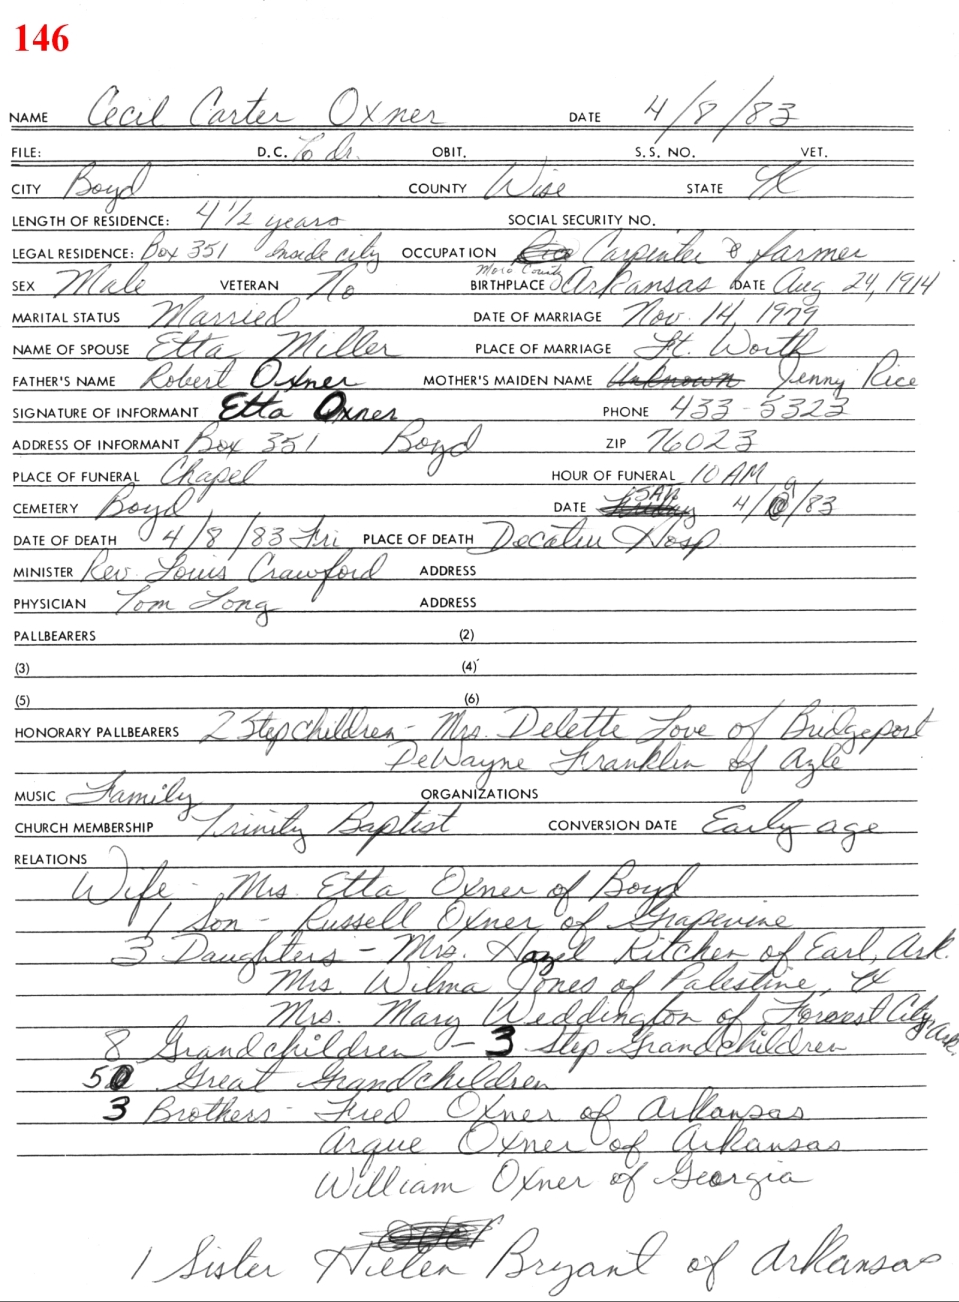 146
NAME Cecil Carter Oxner DATE 4/8/83
FILE: D.C. To dr. OBIT. S.S. NO. VET.
CITY Boyd COUNTY Wise STATE TX
LENGTH OF RESIDENCE: 4 1/2 years SOCIAL SECURITY NO.
LEGAL RESIDENCE: Box 351 Inside city OCCUPATION Carpenter & farmer
SEX Male VETERAN No BIRTHPLACE Arkansas DATE Aug 24, 1914
MARITAL STATUS Married DATE OF MARRIAGE Nov. 14, 1979
NAME OF SPOUSE Etta Miller PLACE OF MARRIAGE Ft. Worth
FATHER'S NAME Robert Oxner MOTHER'S MAIDEN NAME Unknown Jenny Rice
SIGNATURE OF INFORMANT Etta Oxner PHONE 433-5323
ADDRESS OF INFORMANT Box 351 Boyd ZIP 76023
PLACE OF FUNERAL Chapel HOUR OF FUNERAL 10 AM
CEMETERY Boyd DATE 4/9/83
DATE OF DEATH 4/8/83 Fri PLACE OF DEATH Decatur Hosp.
MINISTER Rev. Louis Crawford ADDRESS
PHYSICIAN Tom Long ADDRESS
PALLBEARERS (2)
(3) (4)
(5) (6)
HONORARY PALLBEARERS 2 Stepchildren - Mrs. Delette Love of Bridgeport
DeWayne Franklin of Azle
MUSIC Family ORGANIZATIONS
CHURCH MEMBERSHIP Trinity Baptist CONVERSION DATE Early age
RELATIONS
Wife - Mrs. Etta Oxner of Boyd
1 Son - Russell Oxner of Grapevine
3 Daughters - Mrs. Hazel Kitchen of Earl, Ark.
Mrs. Wilma Jones of Palestine, TX
Mrs. Mary Weddington of Forrest City, Ark.
8 Grandchildren - 3 Step Grandchildren
5 Great Grandchildren
3 Brothers - Fred Oxner of Arkansas
Argue Oxner of Arkansas
William Oxner of Georgia
1 Sister Hielen Bryant of Arkansas